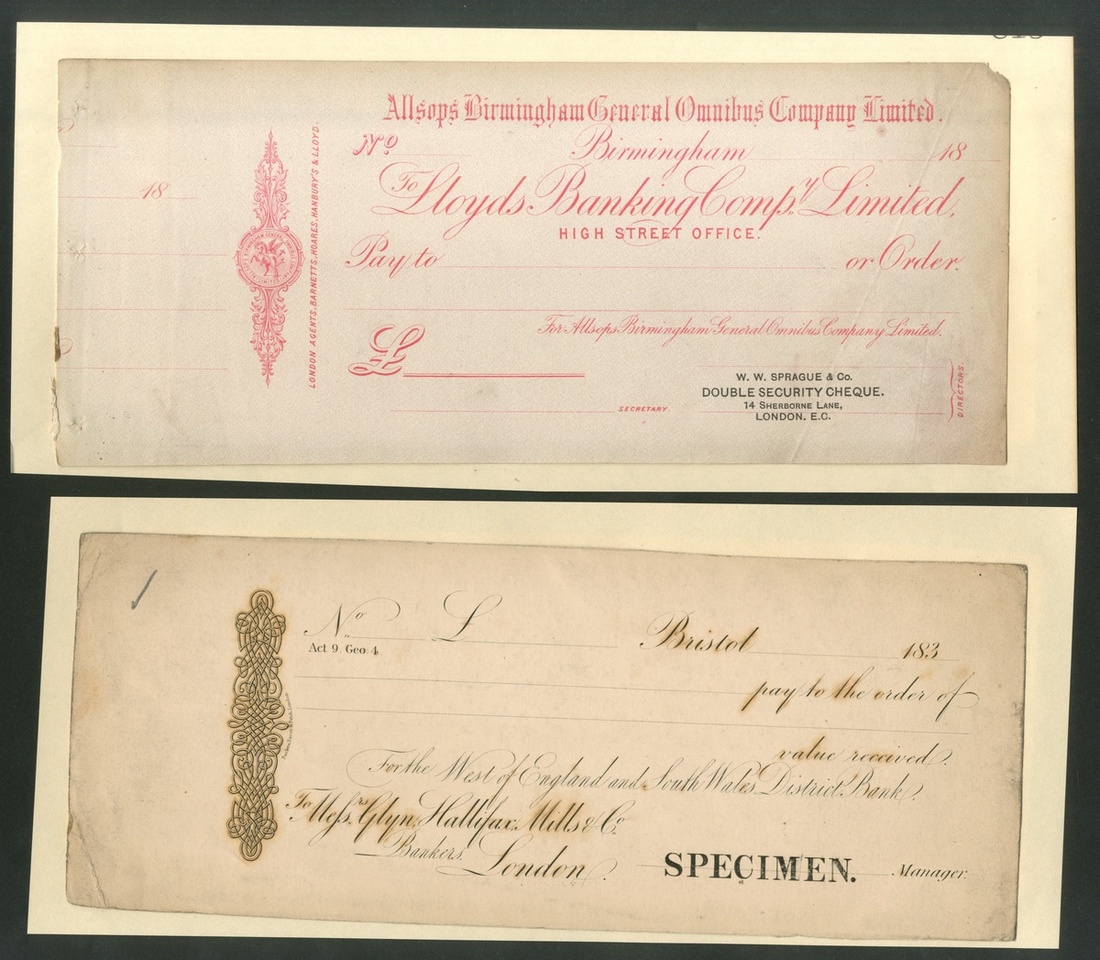 Allsops Birmingham General Omnibus Company Limited.
No
Birmingham 18
18
To Lloyds Banking Compy. Limited,
HIGH STREET OFFICE.
Pay to or Order.
LONDON AGENTS, BARNETTS, HOARES, HANBURY'S & LLOYD.
For Allsops Birmingham General Omnibus Company Limited.
£
W. W. SPRAGUE & Co.
DOUBLE SECURITY CHEQUE.
14 SHERBORNE LANE,
LONDON. E.C.
SECRETARY
DIRECTORS.
No. £ Bristol 183
Act 9. Geo: 4.
pay to the order of
value received.
For the West of England and South Wales District Bank.
To Messrs. Glyn, Hallifax, Mills & Co.
Bankers. London.
SPECIMEN. Manager.